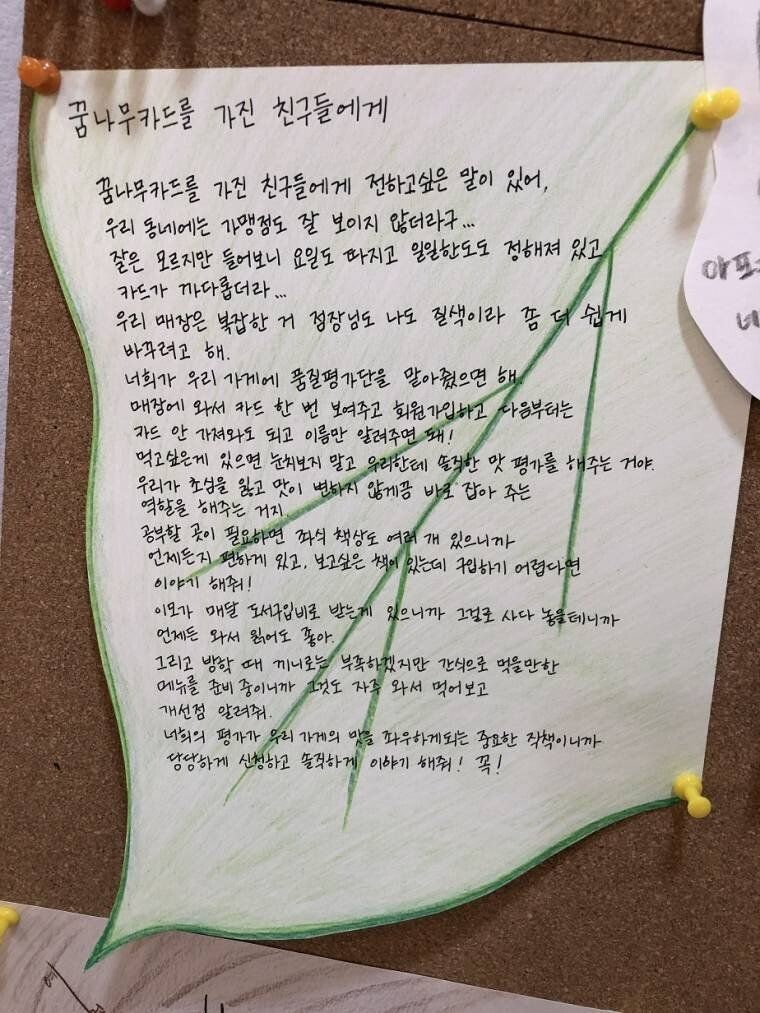 꿈나무카드를 가진 친구들에게
꿈나무카드를 가진 친구들에게 전하고싶은 말이 있어,
우리 동네에는 가맹점도 잘 보이지 않더라구...
잘은 모르지만 들어보니 요일도 따지고 일일한도도 정해져 있고
카드가 까다롭더라...
우리 매장은 복잡한 거 점장님도 나도 질색이라 좀 더 쉽게
바꾸려고 해.
너희가 우리 가게에 품질평가단을 맡아줬으면 해.
매장에 와서 카드 한 번 보여주고 회원가입하고 다음부터는
카드 안 가져와도 되고 이름만 알려주면 돼!
먹고싶은게 있으면 눈치보지 말고 우리한테 솔직한 맛 평가를 해주는 거야.
우리가 초심을 잃고 맛이 변하지 않게끔 바로 잡아 주는
역할을 해주는 거지.
공부할 곳이 필요하면 좌식 책상도 여러 개 있으니까
언제든지 편하게 있고, 보고싶은 책이 있는데 구입하기 어렵다면
이야기 해줘!
이모가 매달 도서구입비로 받는게 있으니까 그걸로 사다 놓을테니까
언제든 와서 읽어도 좋아.
그리고 방학 때 끼니로는 부족하겠지만 간식으로 먹을만한
메뉴를 준비 중이니까 그것도 자주 와서 먹어보고
개선점 알려줘.
너희의 평가가 우리 가게의 맛을 좌우하게되는 중요한 직책이니까
당당하게 신청하고 솔직하게 이야기 해줘! 꼭!